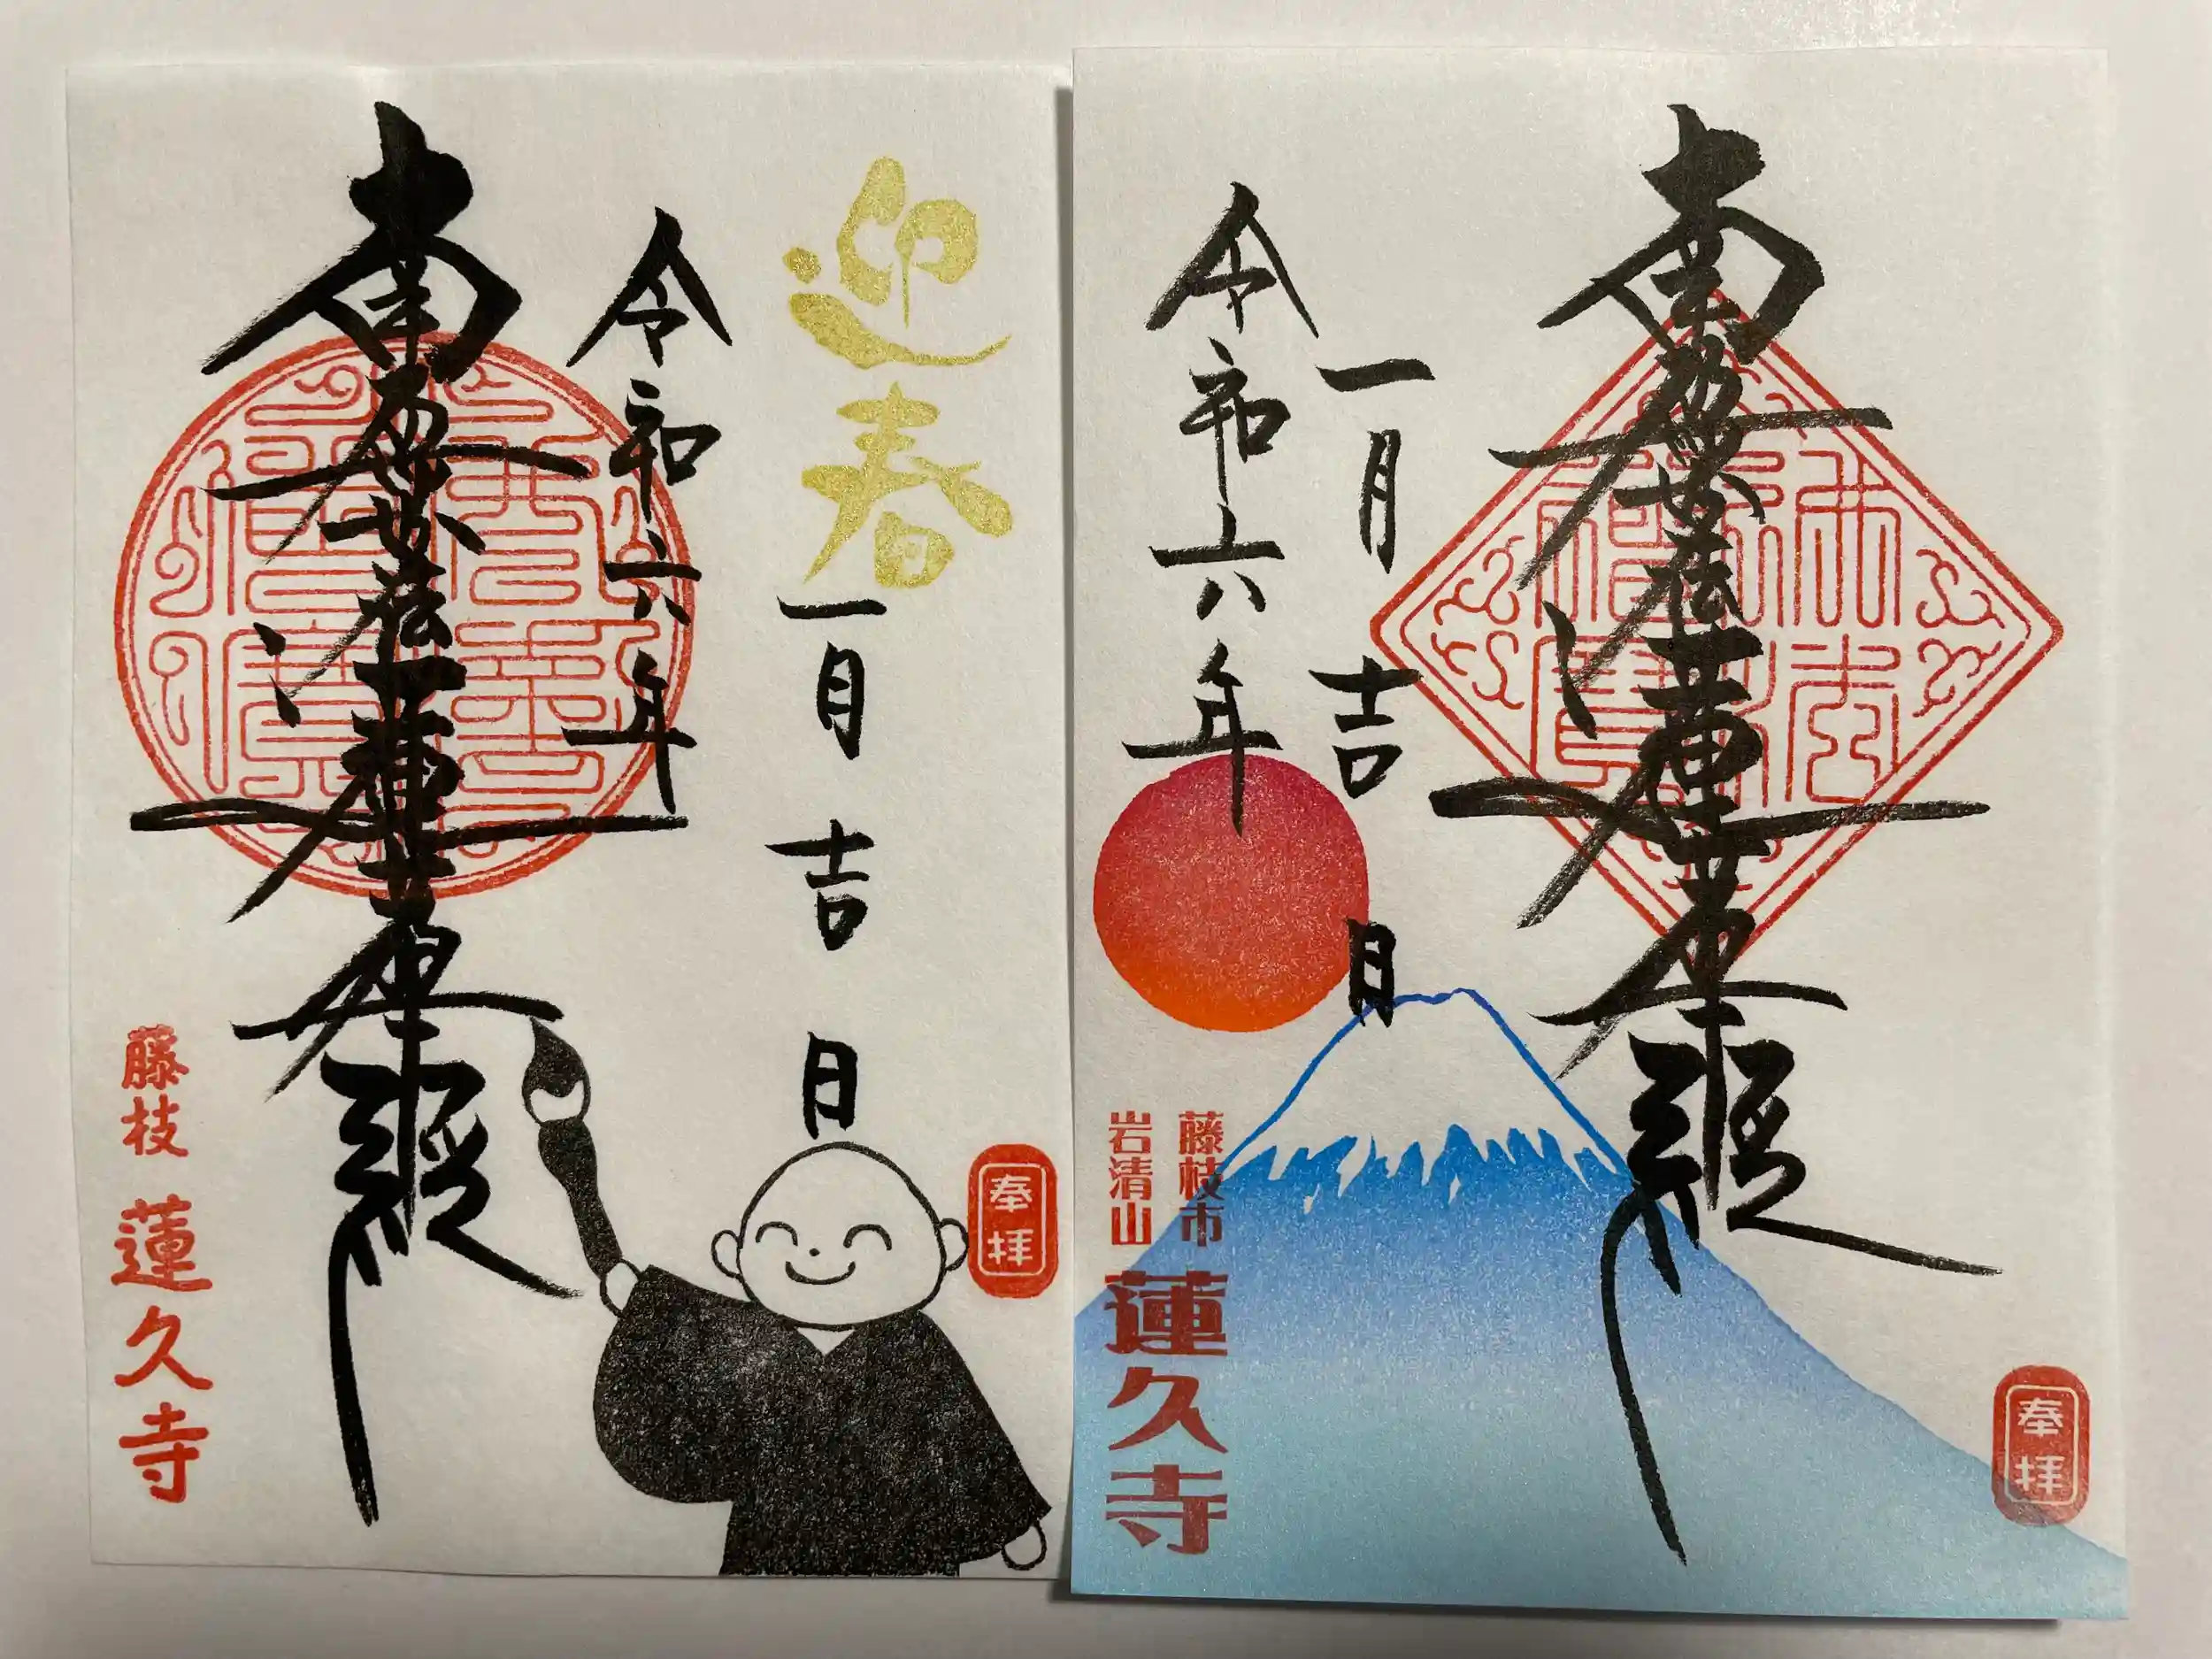 迎春
一月吉日
令和六年
南無妙法蓮華經
藤枝 蓮久寺
奉拝
南無妙法蓮華經
佛法僧寶
一月吉日
令和六年
藤枝市
岩清山
蓮久寺
奉拝